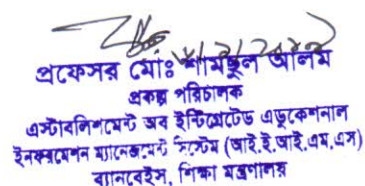 প্রফেসর মোঃ শামছুল আলম
প্রকল্প পরিচালক
এস্টাবলিশমেন্ট অব ইন্টিগ্রেটেড এডুকেশনাল
ইনফরমেশন ম্যানেজমেন্ট সিস্টেম (আই.ই.আই.এম.এস)
ব্যানবেইস, শিক্ষা মন্ত্রণালয়